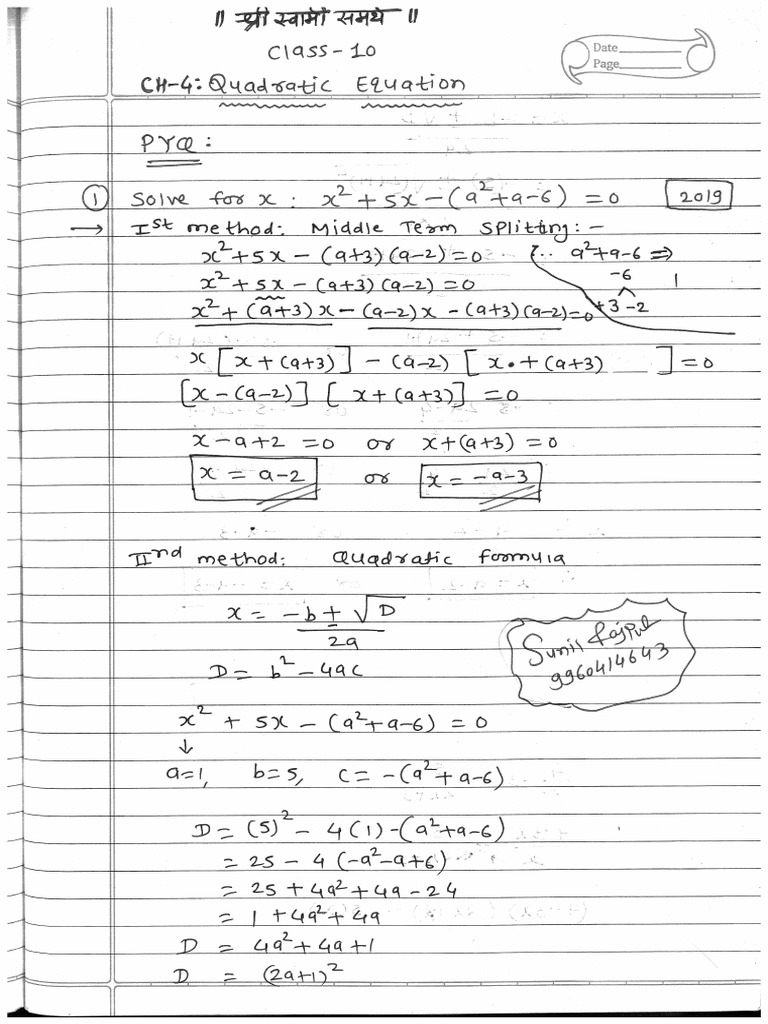 ॥ श्री स्वामी समर्थ ॥
Class-10
Date
Page
CH-4: Quadratic Equation
PYQ:
① Solve for x : x² + 5x – (a² + a – 6) = 0 2019
→ Iˢᵗ method: Middle Term Spliting: –
x² + 5x – (a+3)(a–2) = 0 (∵ a² + a – 6 ⇒
x² + 5x – (a+3)(a–2) = 0 –6 1
x² + (a+3)x – (a–2)x – (a+3)(a–2) = 0 +3 –2
x [x + (a+3)] – (a–2) [x + (a+3) ] = 0
[x – (a–2)] [x + (a+3)] = 0
x – a + 2 = 0 or x + (a+3) = 0
x = a–2 or x = –a–3
IIⁿᵈ method: Quadratic formula
x = –b ± √D
2a
D = b² – 4ac
Sunil Rajput
9960414643
x² + 5x – (a² + a – 6) = 0
↓
a=1, b=5, c = –(a² + a – 6)
D = (5)² – 4(1) –(a² + a – 6)
= 25 – 4(–a² – a + 6)
= 25 + 4a² + 4a – 24
= 1 + 4a² + 4a
D = 4a² + 4a + 1
D = (2a+1)²